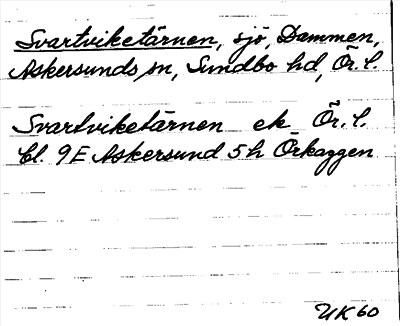 Svartviketärnen, sjö, Dammen,
Askersunds sn, Sundbo hd, Ör. l.
Svartviketärnen ek Ör. l.
bl. 9E Askersund 5h Örkaggen
UK 60